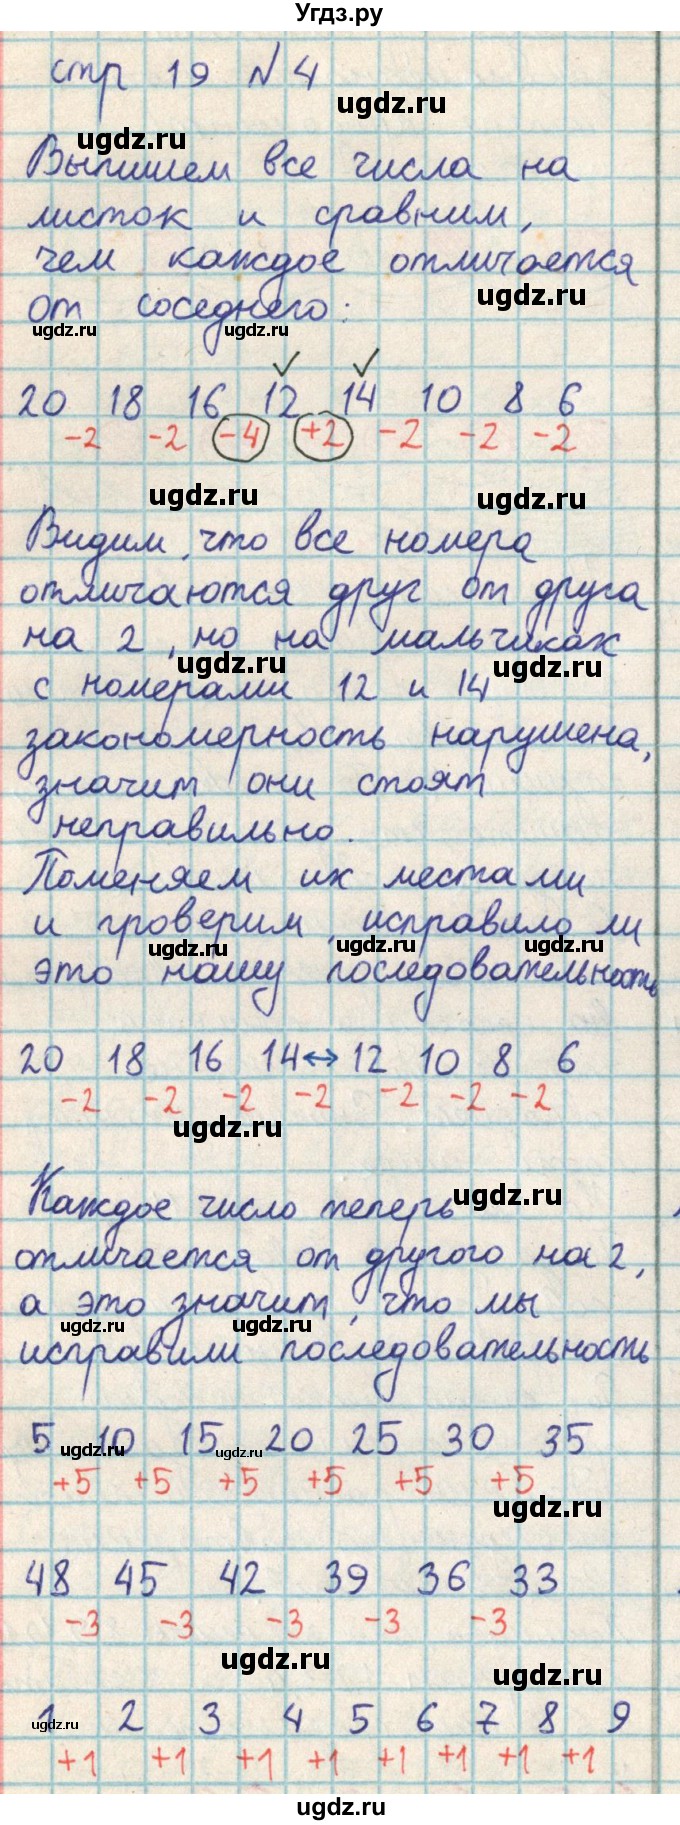 Угдз.ру
стр 19 N 4
ugdz.ru
ugdz.ru
Выпишем все числа на
листок и сравним,
чем каждое отличается
ugdz.ru
от соседнего:
ugdz.ru ugdz.ru
✓ ✓
20 18 16 12 14 10 8 6
-2 -2 -4 +2 -2 -2 -2
ugdz.ru ugdz.ru
Видим, что все номера
отличаются друг от друга
на 2, но на мальчиках
ugdz.ru ugdz.ru
с номерами 12 и 14
закономерность нарушена,
значит они стоят
неправильно.
Поменяем их местами
и проверим, исправило ли
ugdz.ru ugdz.ru ugdz.ru
это нашу последовательность
20 18 16 14↔12 10 8 6
-2 -2 -2 -2 -2 -2 -2
ugdz.ru
Каждое число теперь
ugdz.ru
отличается от другого на 2,
а это значит, что мы
ugdz.ru ugdz.ru
исправили последовательность
5 10 15 20 25 30 35
ugdz.ru ugdz.ru
+5 +5 +5 +5 +5 +5
ugdz.ru
48 45 42 39 36 33
-3 -3 -3 -3 -3
ugdz.ru ugdz.ru
1 2 3 4 5 6 7 8 9
ugdz.ru
+1 +1 +1 +1 +1 +1 +1 +1
ugdz.ru